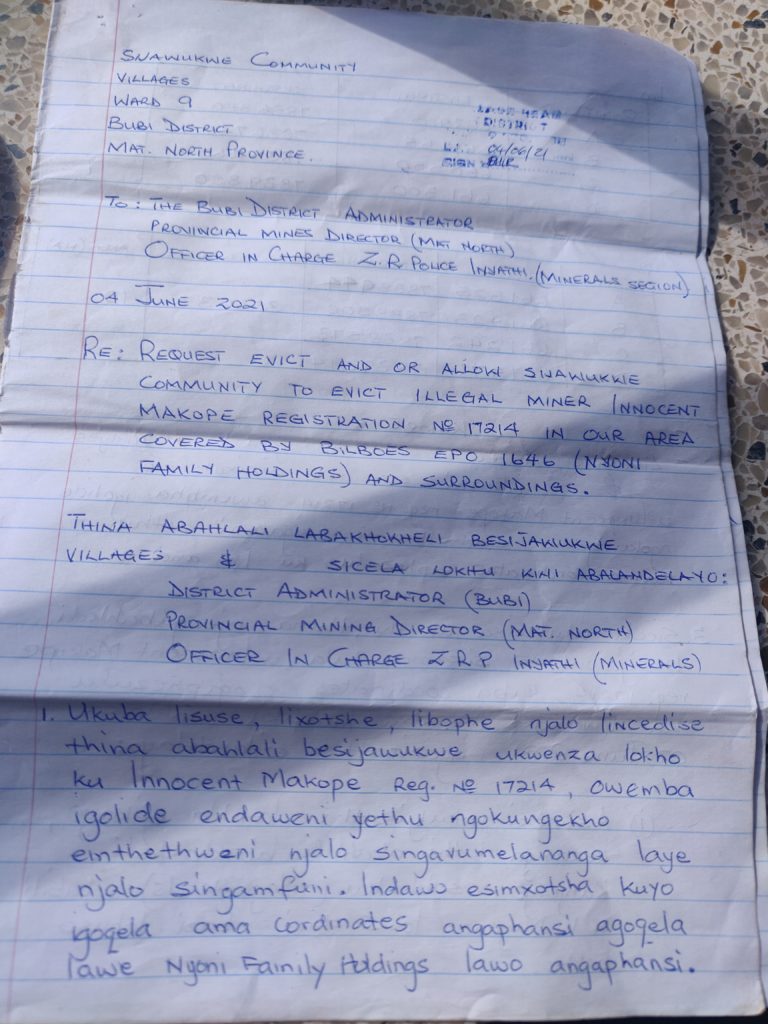 SIJAWUKWE COMMUNITY
VILLAGES
WARD 9
BUBI DISTRICT
MAT. NORTH PROVINCE.
DISTRICT
04/06/21
SIGN
TO: THE BUBI DISTRICT ADMINISTRATOR
PROVINCIAL MINES DIRECTOR (MAT NORTH)
OFFICER IN CHARGE Z.R POLICE INYATHI. (MINERALS SEGION)
04 JUNE 2021
RE: REQUEST EVICT AND OR ALLOW SIJAWUKWE
COMMUNITY TO EVICT ILLEGAL MINER INNOCENT
MAKOPE REGISTRATION Nº 17214 IN OUR AREA
COVERED BY BILBOES EPO 1646 (NYONI
FAMILY HOLDINGS) AND SURROUNDINGS.
THINA ABAHLALI LABAKHOKHELI BESIJAWUKWE
VILLAGES & SICELA LOKHU KINI ABALANDELAYO:
DISTRICT ADMINISTRATOR (BUBI)
PROVINCIAL MINING DIRECTOR (MAT. NORTH)
OFFICER IN CHARGE Z R P INYATHI (MINERALS)
1. Ukuba lisuse, lixotshe, libophe njalo lincedise
thina abahlali besijawukwe ukwenza lokho
ku Innocent Makope Reg. Nº 17214, owemba
igolide endaweni yethu ngokungekho
emthethweni njalo singavumelananga laye
njalo singamfuni. Indawo esimxotsha kuyo
igoqela ama cordinates angaphansi agoqela
lawe Nyoni Family Holdings lawo angaphansi.